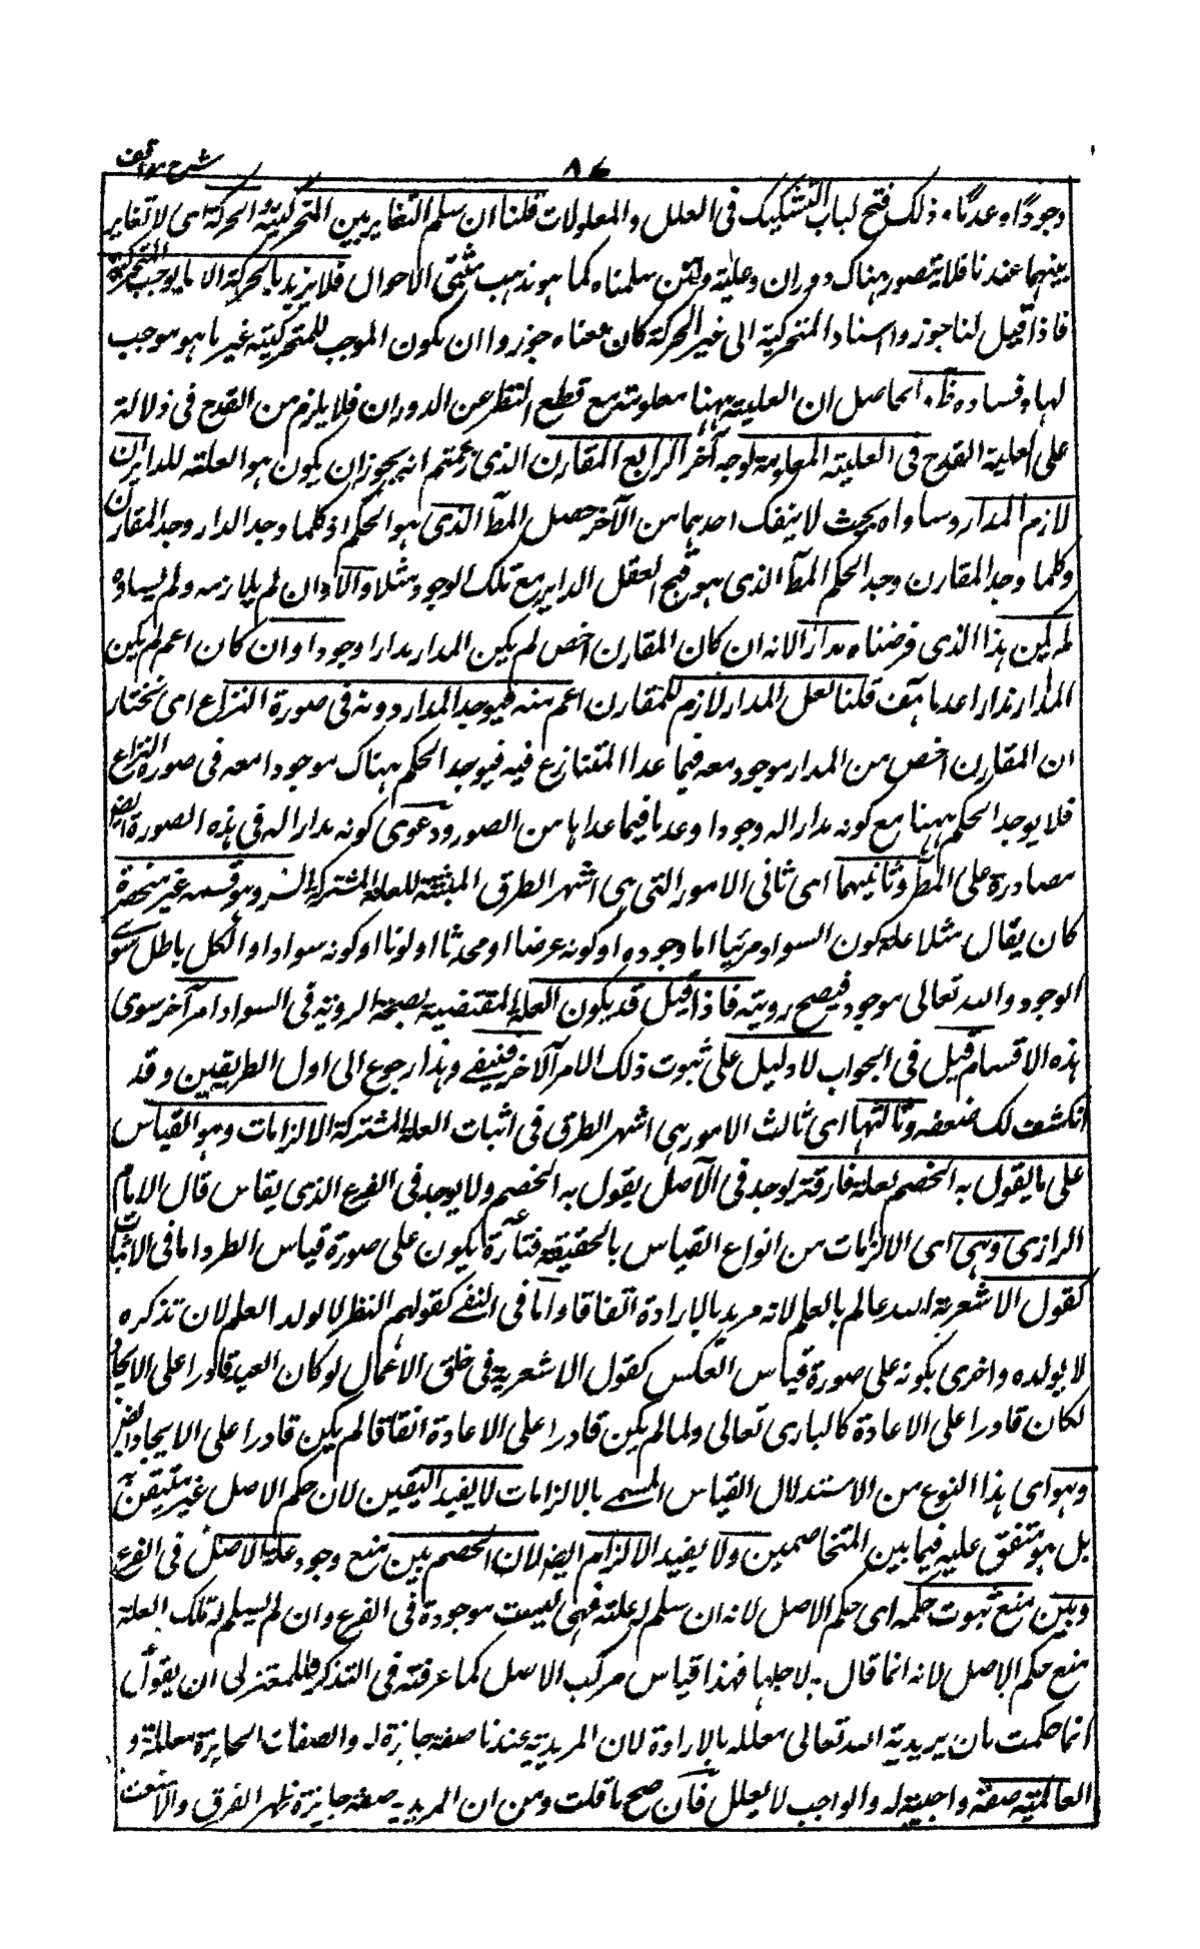 شرح مواقف
٨٤
وجودًا وعدمًا وذلك فتح لباب التشكيك فى العلل والمعلولات قلنا ان سلم التغاير بين المتحركية والحركة اى لا تغاير
بينهما عندنا فلا يتصور هناك دوران وعلية ولئن سلمناه كما هو مذهب مثبتى الاحوال فلا يزيد بالحركة الا ما يوجب المتحركية
فاذا قيل لنا جوزوا اسناد المتحركية الى غير الحركة كان معناه جوزوا ان يكون الموجب للمتحركية غير ما هو موجب
لها وفساده ظ والحاصل ان العلية ههنا معلومة مع قطع النظر عن الدوران فلا يلزم من القدح فى دلالته
على العلية القدح فى العلية المعلومة لوجه آخر الرابع المقارن الذى زعمتم انه يجوز ان يكون هو العلة للداير ان
لازم المدار وساواه بحيث لا ينفك احدهما من الآخر حصل المط الذى هو الحكم اذ كلما وجد المدار وجد المقارن
وكلما وجد المقارن وجد الحكم المط الذى هو قبح العقل الداير مع تلك الوجوه مثلا والا اى وان لم يلازمه ولم يساوه
لم يكن هذا الذى فرضناه مدارا لانه ان كان المقارن اخص لم يكن المدار مدارا وجودا وان كان اعم لم يكن
المدار مدارا عدما هف قلنا لعل المدار لازم للمقارن اعم منه فيوجد المدار دونه فى صورة النزاع اى نختار
ان المقارن اخص من المدار موجود معه فيما عدا المتنازع فيه فيوجد الحكم هناك موجودا معه فى صورة النزاع
فلا يوجد الحكم ههنا مع كونه مدارا له وجودا وعدما فيما عداها من الصور ودعوى كونه مدارا له فى هذه الصورة ايضا
مصادرة على المط وثانيهما اى ثانى الامور التى هى اشهر الطرق المثبتة للعلة المشتركة السبر وهو قسمة غير منحصرة
كان يقال مثلا علة كون السواد مرئيا اما وجوده او كونه عرضا او محدثا او لونا او كونه سوادا والكل باطل سوى
الوجود والله تعالى موجود فيصح رويته فاذا قيل قد يكون العلة المقتضية لصحة الروية فى السواد امر آخر سوى
هذه الاقسام قيل فى الجواب لا دليل على ثبوت ذلك الامر الآخر فينفى وهذا رجوع الى اول الطريقين وقد
انكشف لك ضعفه وثالثها اى ثالث الامور هى اشهر الطرق فى اثبات العلة المشتركة الالزامات وهو القياس
على ما يقول به الخصم لعلة فارقة يوجد فى الاصل يقول به الخصم ولا يوجد فى الفرع الذى يقاس قال الامام
الرازى وهى اى الالزامات من انواع القياس بالحقيقة فتارة يكون على صورة قياس الطرد اما فى الاثبات
كقول الاشعرية الله عالم بالعلم لانه مريد بالارادة اتفاقا واما فى النفى كقولهم النظر لا يولد العلم لان تذكره
لا يولده واخرى بكونه على صورة قياس العكس كقول الاشعرية فى خلق الاعمال لو كان العبد قادرا على الايجاد
لكان قادرا على الاعادة كالبارى تعالى ولما لم يكن قادرا على الاعادة اتفاقا لم يكن قادرا على الايجاد ايضا
وهو اى هذا النوع من الاستدلال القياس المسمى بالالزامات لا يفيد اليقين لان حكم الاصل غير متيقن
بل هو متفق عليه فيما بين المتخاصمين ولا يفيد الالزام ايضا لان الخصم بين منع وجود علة الاصل فى الفرع
وبين منع ثبوت حكمه اى حكم الاصل لانه ان سلم له علته فهى ليست موجودة فى الفرع وان لم يسلم له تلك العلة
منع حكم الاصل لانه انما قال به لاجلها فهذا قياس مركب الاصل كما عرفته فى التذكر فللمعتزلى ان يقول
انما حكمت بان مريدية الله تعالى معللة بالارادة لان المريدية عندنا صفة جايزة له والصفات الجايزة معللة و
العالمية صفة واجبة له والواجب لا يعلل فان صح ما قلت ومن ان المريدية صفة جايزة ظهر الفرق والا منعت